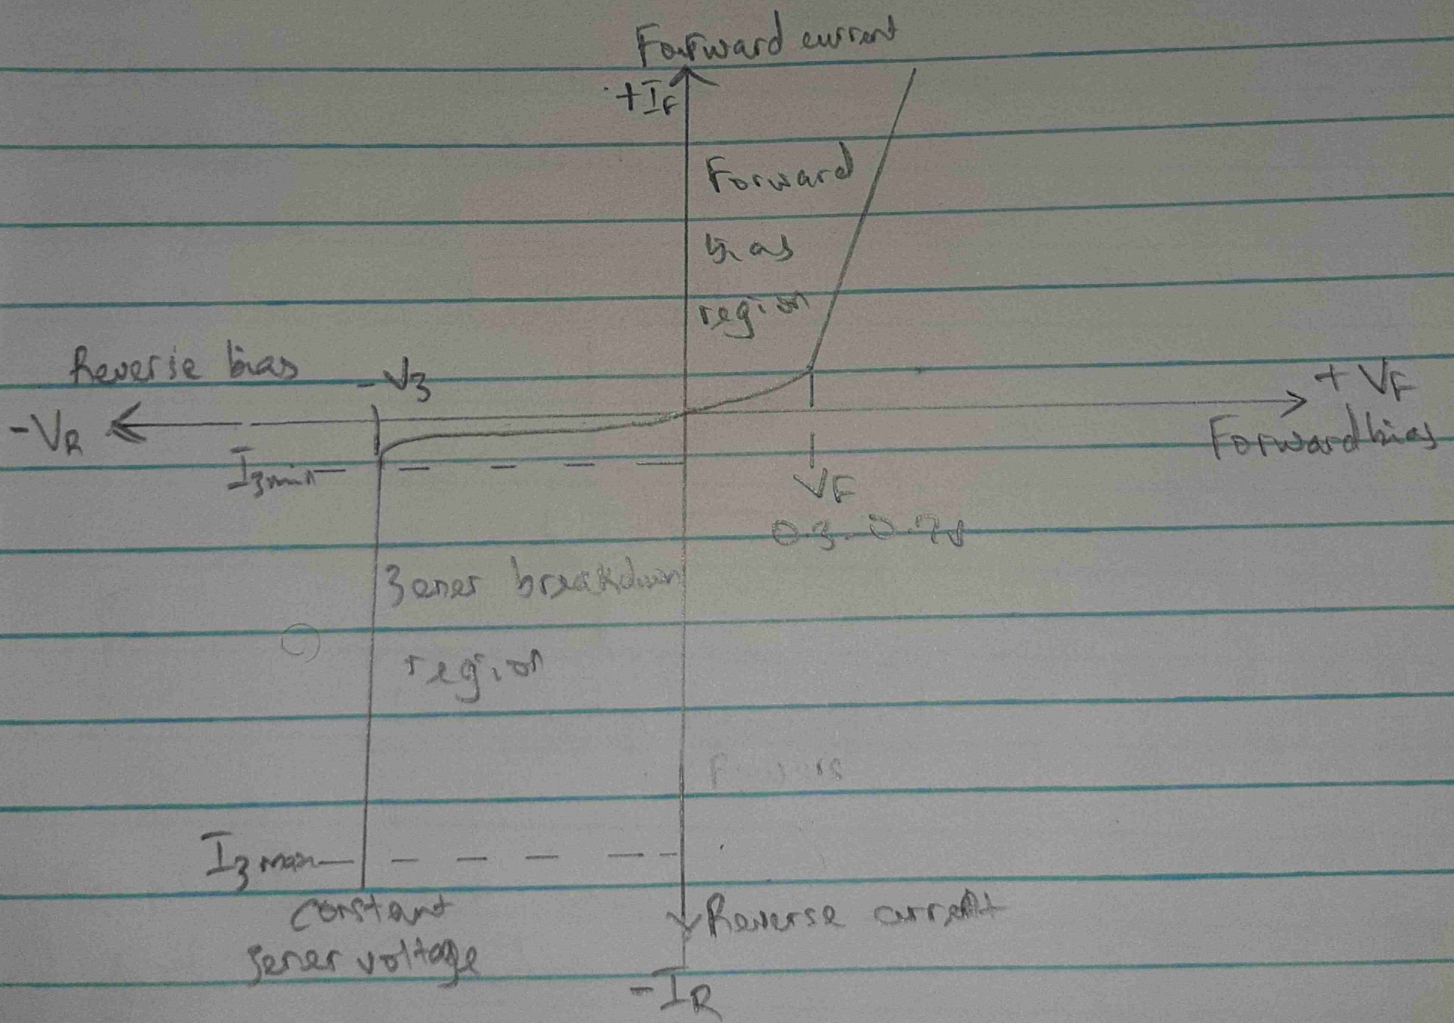 Forward current
+IF
Forward
bias
region
Reverse bias
-V3
+ VF
-VR
Forward bias
I3min
VF
0.3-0.7v
Zener breakdown
region
I3max
constant
Reverse current
zener voltage
-IR